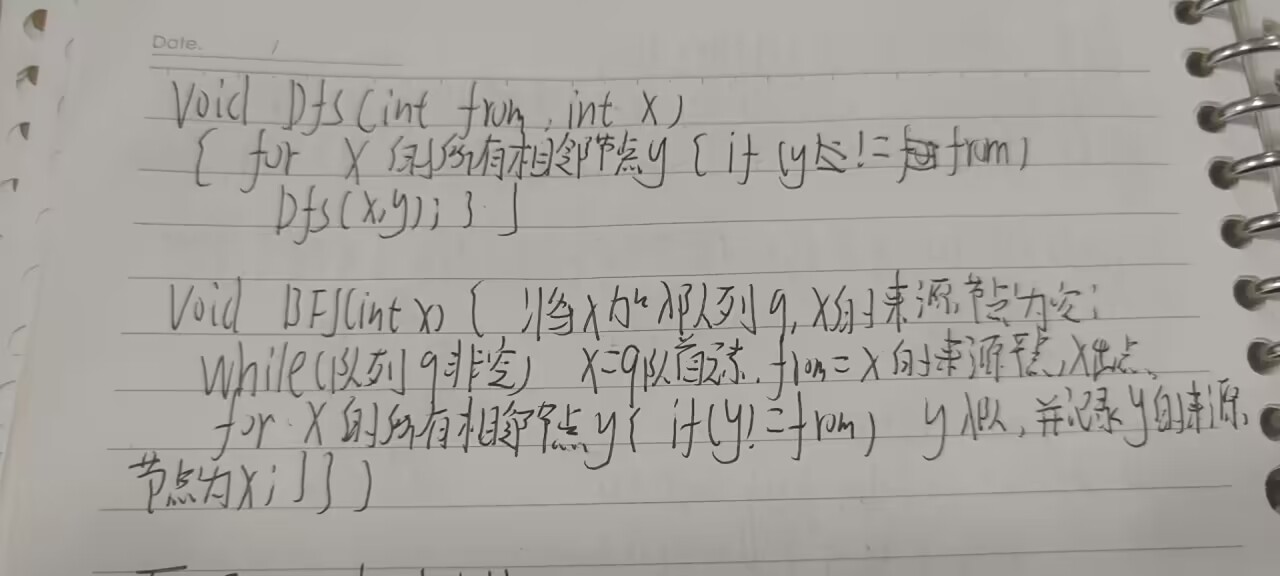 Date.
Void Dfs(int from, int x)
{ for x的所有相邻节点y { if (y != from)
Dfs(x,y); } }
Void BFS(int x) { 将x加入队列q, x的来源节点为空;
while(队列q非空) x=q队首元素, from=x的来源节点, x出
for x的所有相邻节点y{ if(y!=from) y入队, 并记录y的来源
节点为x; } } }